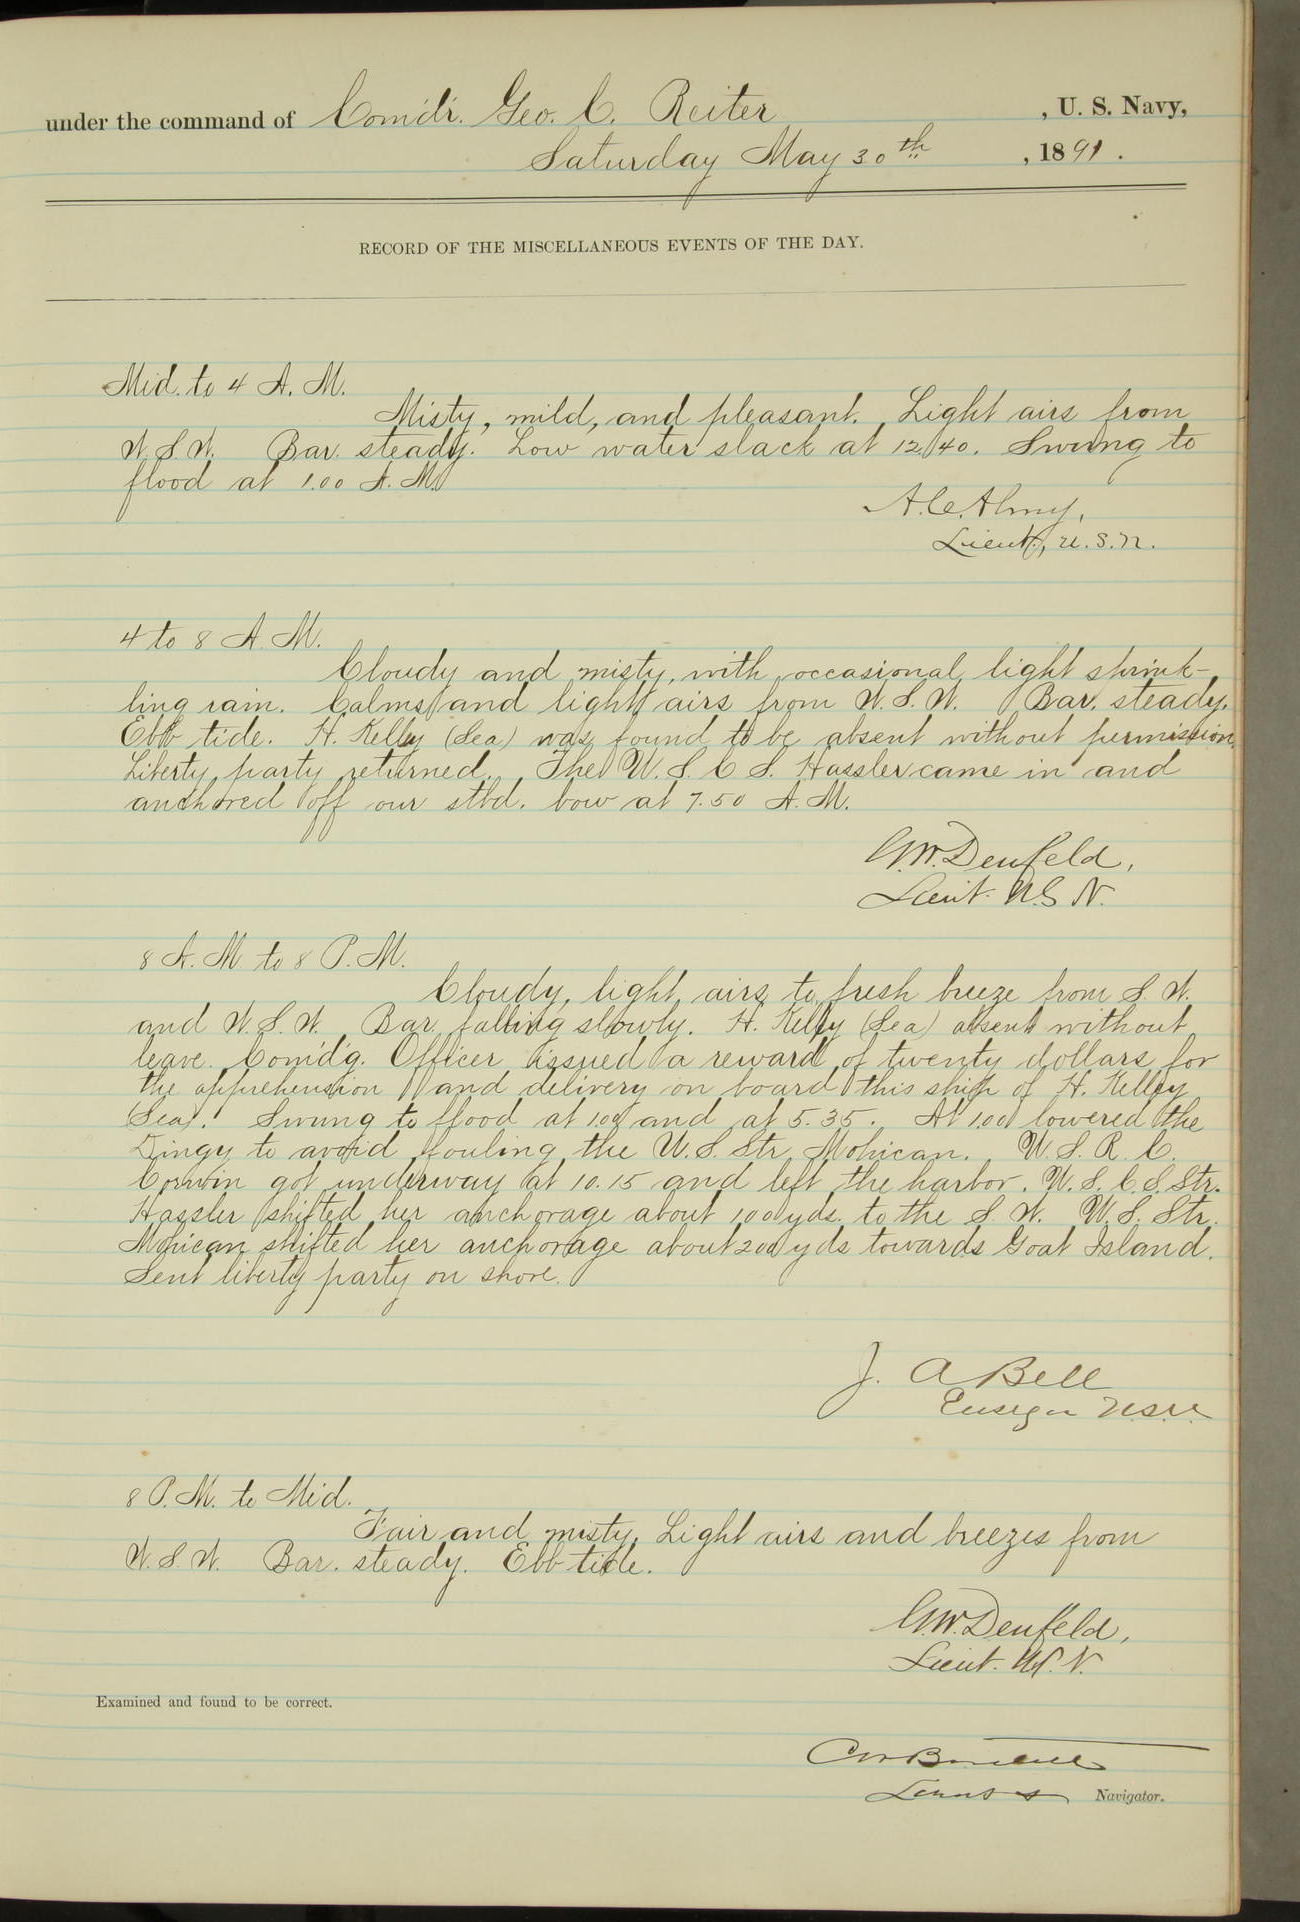 under the command of Comdr. Geo. C. Reiter, U. S. Navy,
Saturday May 30th, 1891.
RECORD OF THE MISCELLANEOUS EVENTS OF THE DAY.
Mid. to 4 A. M.
Misty, mild, and pleasant. Light airs from
W. S. W. Bar. steady. Low water slack at 12.40. Swung to
flood at 1.00 A. M.
A. C. Almy,
Lieut., U. S. N.
4 to 8 A. M.
Cloudy and misty, with occasional light sprink-
ling rain. Calms and light airs from W. S. W. Bar. steady.
Ebb tide. H. Kelley (Sea) was found to be absent without permission.
Liberty party returned. The U. S. C. S. Hassler came in and
anchored off our stbd. bow at 7.50 A. M.
G. W. Denfeld,
Lieut. U. S. N.
8 A. M. to 8 P. M.
Cloudy, light airs to fresh breeze from S. W.
and W. S. W. Bar. falling slowly. H. Kelley (Sea) absent without
leave. Com'd'g. Officer issued a reward of twenty dollars for
the apprehension and delivery on board this ship of H. Kelley
(Sea). Swung to flood at 1.00 and at 5.35. At 1.00 lowered the
Dingy to avoid fouling the U. S. Str. Mohican. U. S. R. C.
Corwin got underway at 10.15 and left the harbor. U. S. C. S. Str.
Hassler shifted her anchorage about 100 yds. to the S. W. U. S. Str.
Mohican shifted her anchorage about 200 yds towards Goat Island.
Sent liberty party on shore.
J. A Bell
Ensign U.S.N.
8 P. M. to Mid.
Fair and misty. Light airs and breezes from
W. S. W. Bar. steady. Ebb tide.
G. W. Denfeld,
Lieut. U. S. N.
Examined and found to be correct.
Navigator.